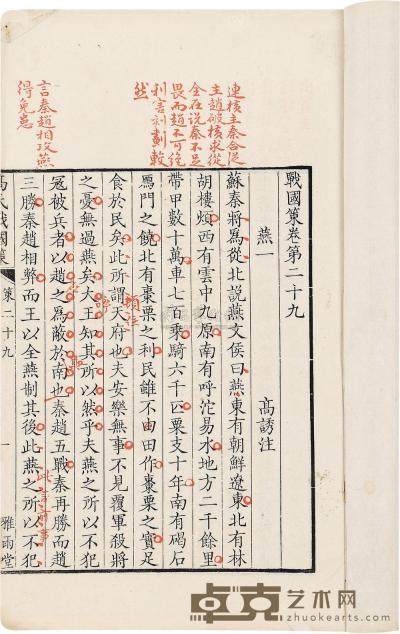 連橫主秦合從
主趙破橫求從
全在說秦不足
畏而趙不可絕
利害剖劃較
然
言秦趙相攻燕
得免患
戰國策卷第二十九
燕一 高誘注
蘇秦將爲從北說燕文侯曰燕東有朝鮮遼東北有林
胡樓煩西有雲中九原南有呼沱易水地方二千餘里
帶甲數十萬車七百乘騎六千匹粟支十年南有碣石
鴈門之饒北有棗栗之利民雖不由田作棗栗之實足
食於民矣此所謂天府也夫安樂無事不見覆軍殺將
之憂無過燕矣大王知其所以然乎夫燕之所以不犯
冦被兵者以趙之爲蔽於南也秦趙五戰秦再勝而趙
三勝秦趙相弊而王以全燕制其後此燕之所以不犯
高氏戰國策 策二十九 一 雅雨堂
卓克艺术网
www.zhuokearts.com